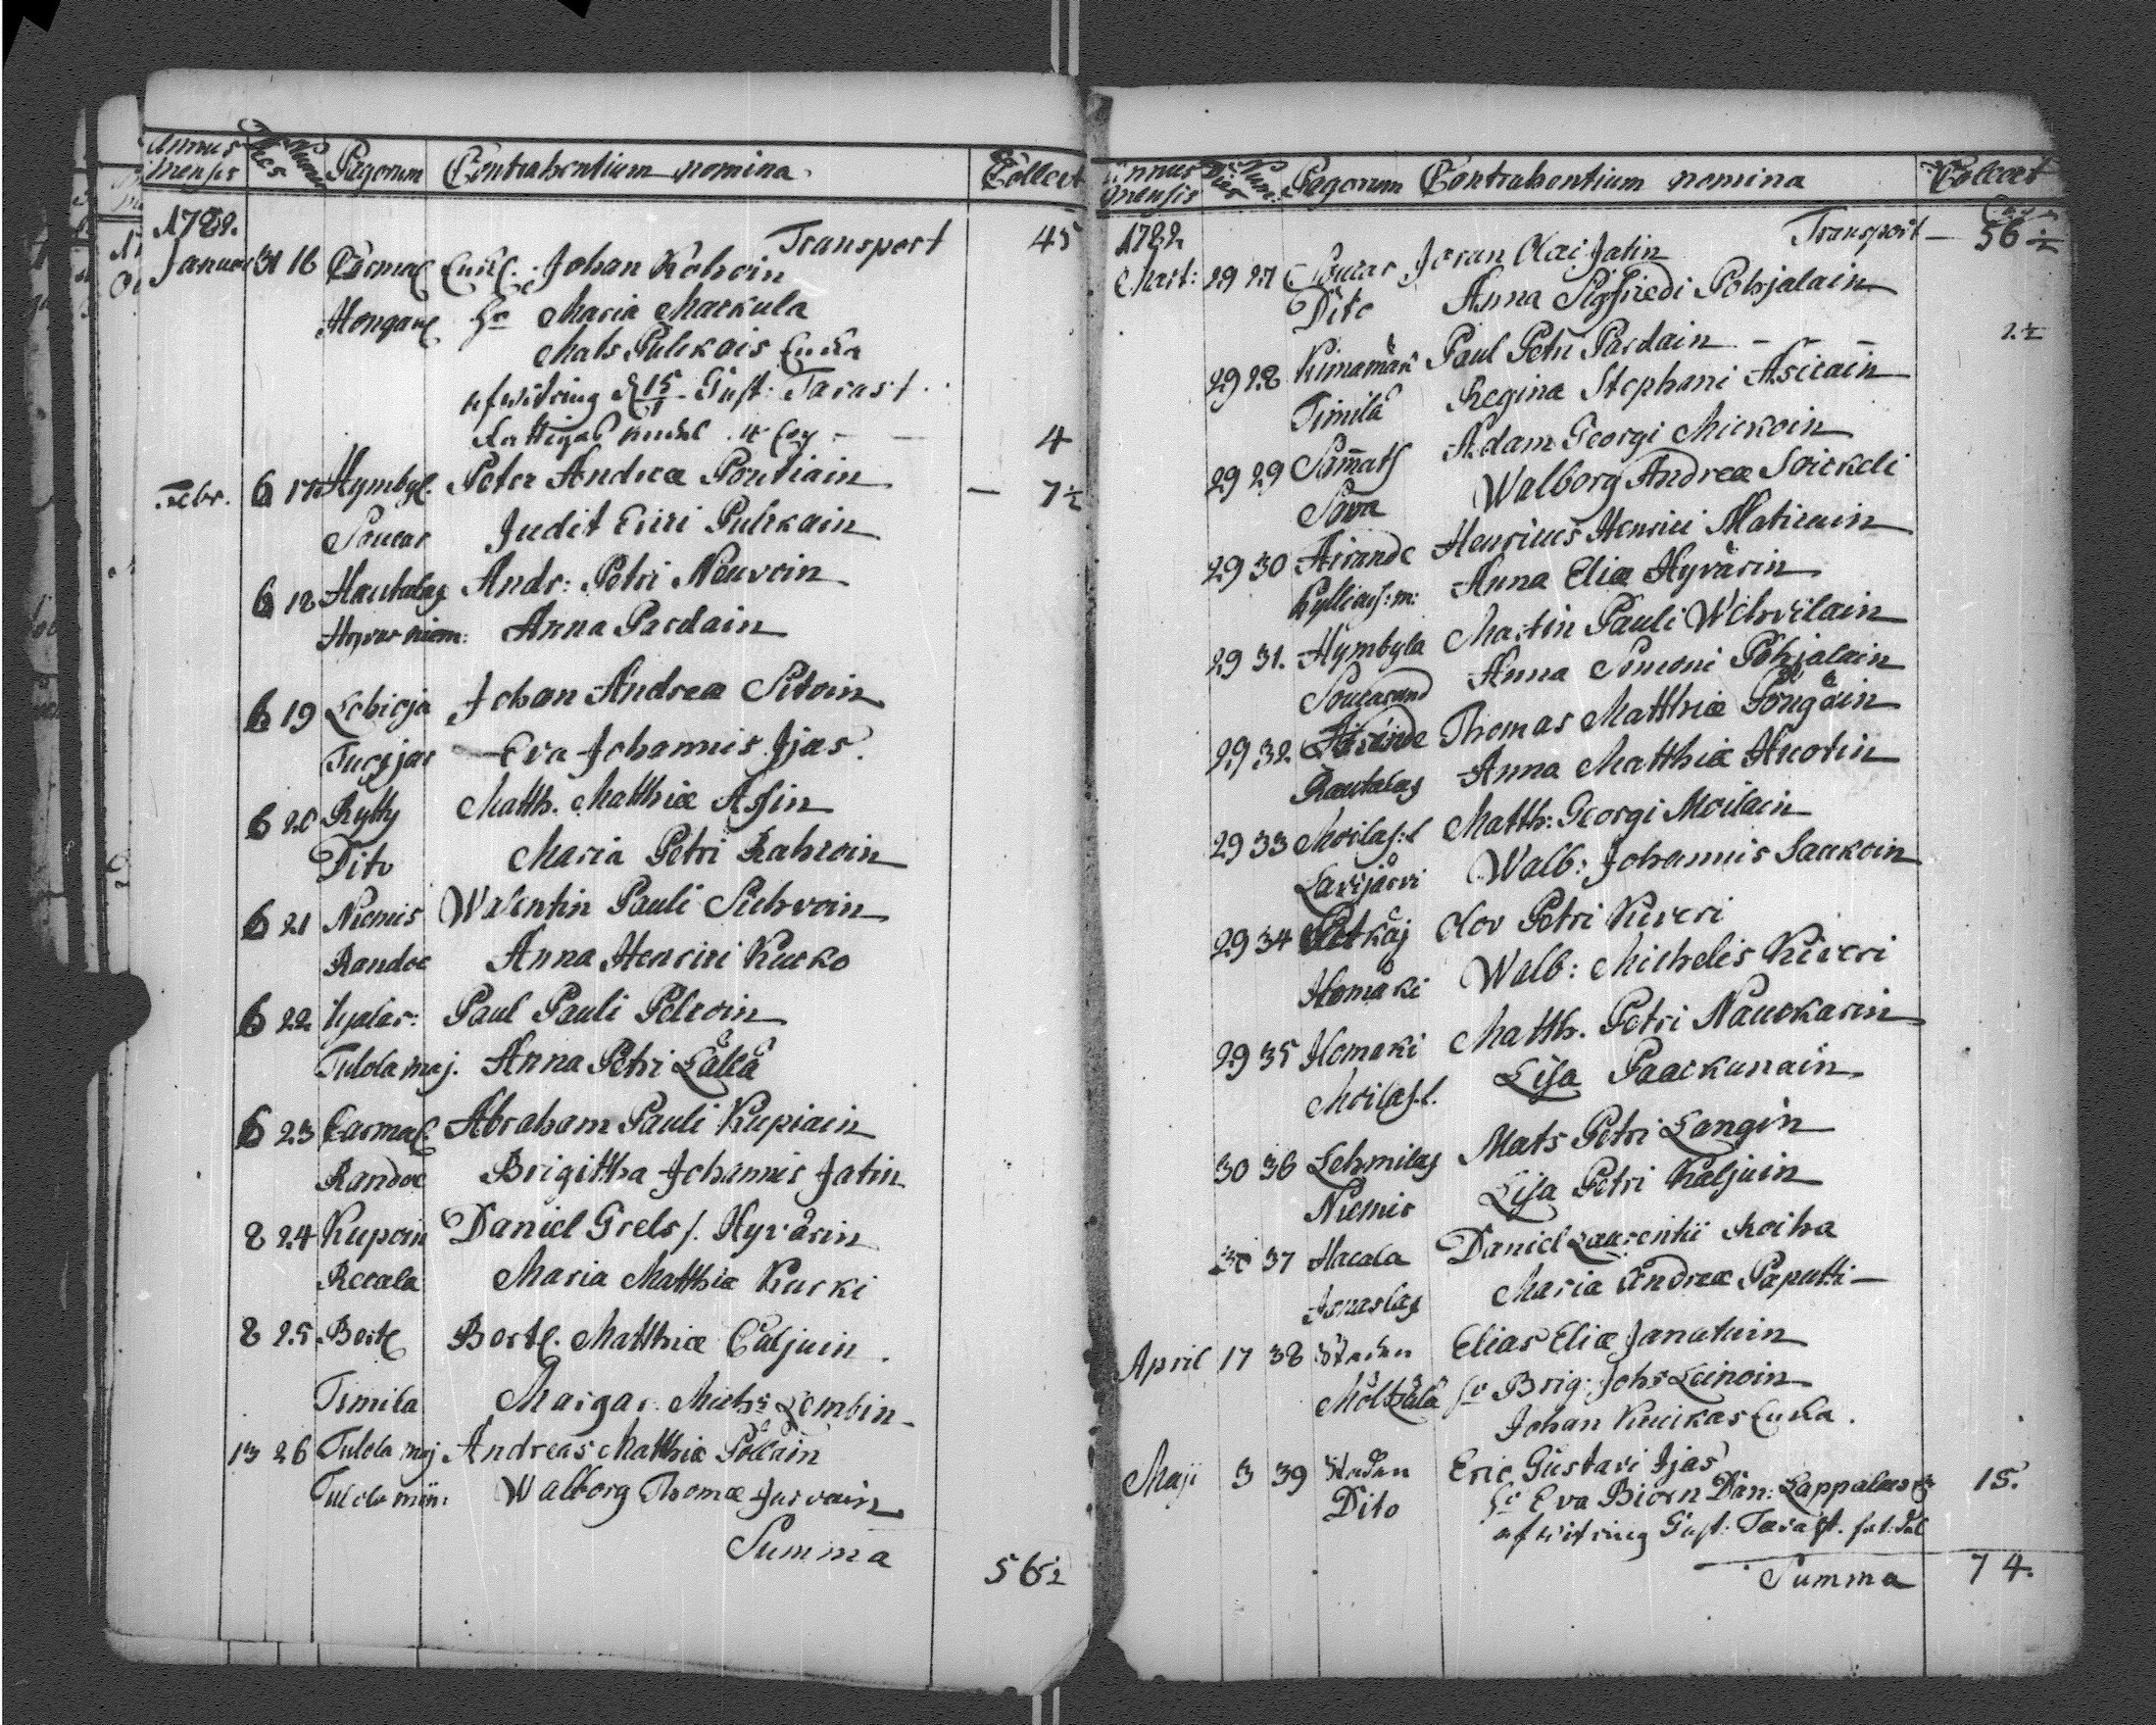 Annus Mensis Dies Num: Pagorum Contrahentium nomina. Collect
1782. Transport 45
Januar 31 16 Carmal Enkl. Johan Kohoin
Hongan Ho Maria Markula
Mats Pulckois Encka
af witring d 15/1 Gust: Tarast
fattigas 4 4
Febr. 6 17 Hymbyl. Peter Andreæ Pontiain — 7½
Soucar Judit Erici Pulckain
6 18 Hautalax Andr: Petri Neuvoin
niem: Anna Pardain
6 19 Lohioja Johan Andreæ Sitoin
Eva Johannis Ijas.
6 20 Rytty Matth. Matthiæ Assin
Dito Maria Petri Rahcoin
6 21 Niemis Walentin Pauli Sichvoin
Randoe Anna Henrici Kucko
6 22 Paul Pauli Pelcoin
Tulola maj. Anna Petri Lällä
6 23 Carmal. Abraham Pauli Kupiain
Randoe Brigittha Johannis Jatin
8 24 Kupoin Daniel Grels s. Hyvärin
Recala Maria Matthiæ Kurki
8 25 Bertl Bertl. Matthiæ Caljuin.
Timila Margar. Michs Lembin
13 26 Tulola maj Andreas Matthiæ Pöllain
Tulola min: Walborg Thomæ Jurvain
Summa 56½
Annus Mensis Dies Num: Pagorum Contrahentium nomina Collect
1782 Transport — 56½
Mart: 29 27 Soucar Joran Olai Jatin
Dito Anna Sigfredi Pohjalain
29 28 Kimamäk Paul Petri Pardain — — — 2½
Timilä Regina Stephani Asicain
29 29 Sammats Adam Georgi Mickoin
Sova Walborg Andreæ Soickeli
29 30 Airande Henricus Henrici Maticain
Anna Eliæ Hyvärin
29 31. Hymbyla Martin Pauli Wihvilain
Soucasand Anna Simoni Pohjalain
29 32 Airande Thomas Matthiæ Pongäin
Rautalax Anna Matthiæ Huotin
29 33 Moilas:l Matth: Georgi Moilain
Lavijärvi Walb: Johannis Laukoin
29 34 Potkäj Olov Petri Kiveri
Ilomäki Walb: Michelis Kiveri
29 35 Ilomäki Matth. Petri Nauckarin
Moilas.l. Lisa Paackunain
30 36 Lehmilax Mats Petri Langin
Niemis Lisa Petri Kaljuin
30 37 Hacala Daniel Laurentii Roiha
Jonaslax Maria Andreæ Paputti —
April 17 38 Staden Elias Eliæ Janatuin
Brig: Johs Leinoin
Johan Encka.
Maji 3 39 Staden Eric Gustavi Ijas
Dito Eva Biörn Dan: 15.
af witring Gust: Tarast.
Summa 74.